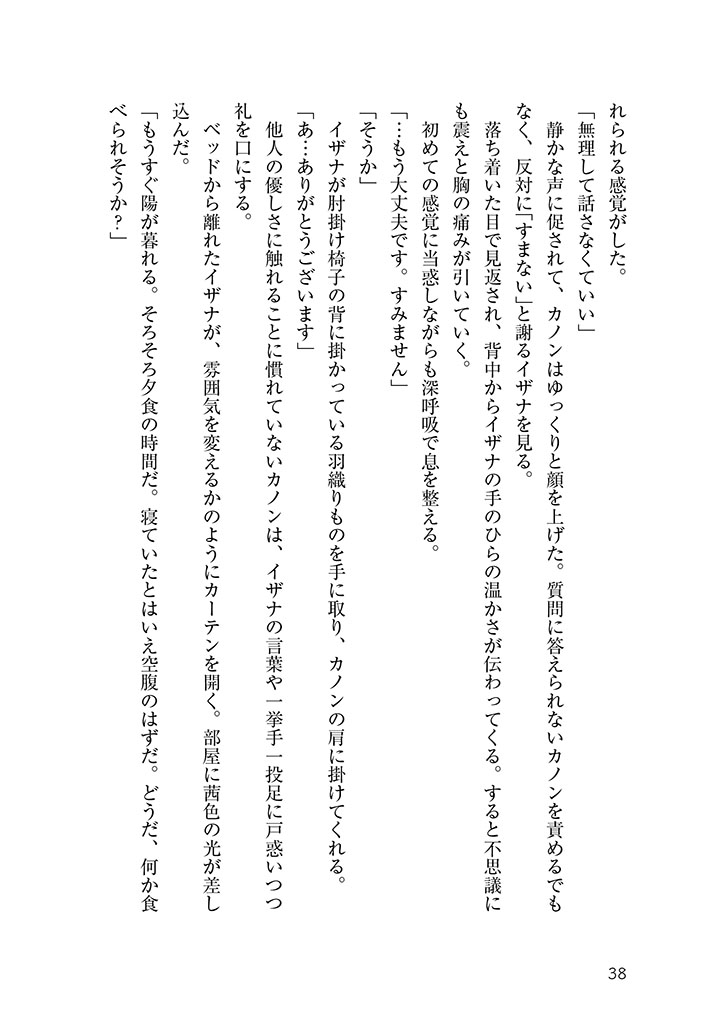 れられる感覚がした。
「無理して話さなくていい」
静かな声に促されて、カノンはゆっくりと顔を上げた。質問に答えられないカノンを責めるでも
なく、反対に「すまない」と謝るイザナを見る。
落ち着いた目で見返され、背中からイザナの手のひらの温かさが伝わってくる。すると不思議に
も震えと胸の痛みが引いていく。
初めての感覚に当惑しながらも深呼吸で息を整える。
「…もう大丈夫です。すみません」
「そうか」
イザナが肘掛け椅子の背に掛かっている羽織りものを手に取り、カノンの肩に掛けてくれる。
「あ…ありがとうございます」
他人の優しさに触れることに慣れていないカノンは、イザナの言葉や一挙手一投足に戸惑いつつ
礼を口にする。
ベッドから離れたイザナが、雰囲気を変えるかのようにカーテンを開く。部屋に茜色の光が差し
込んだ。
「もうすぐ陽が暮れる。そろそろ夕食の時間だ。寝ていたとはいえ空腹のはずだ。どうだ、何か食
べられそうか？」
38